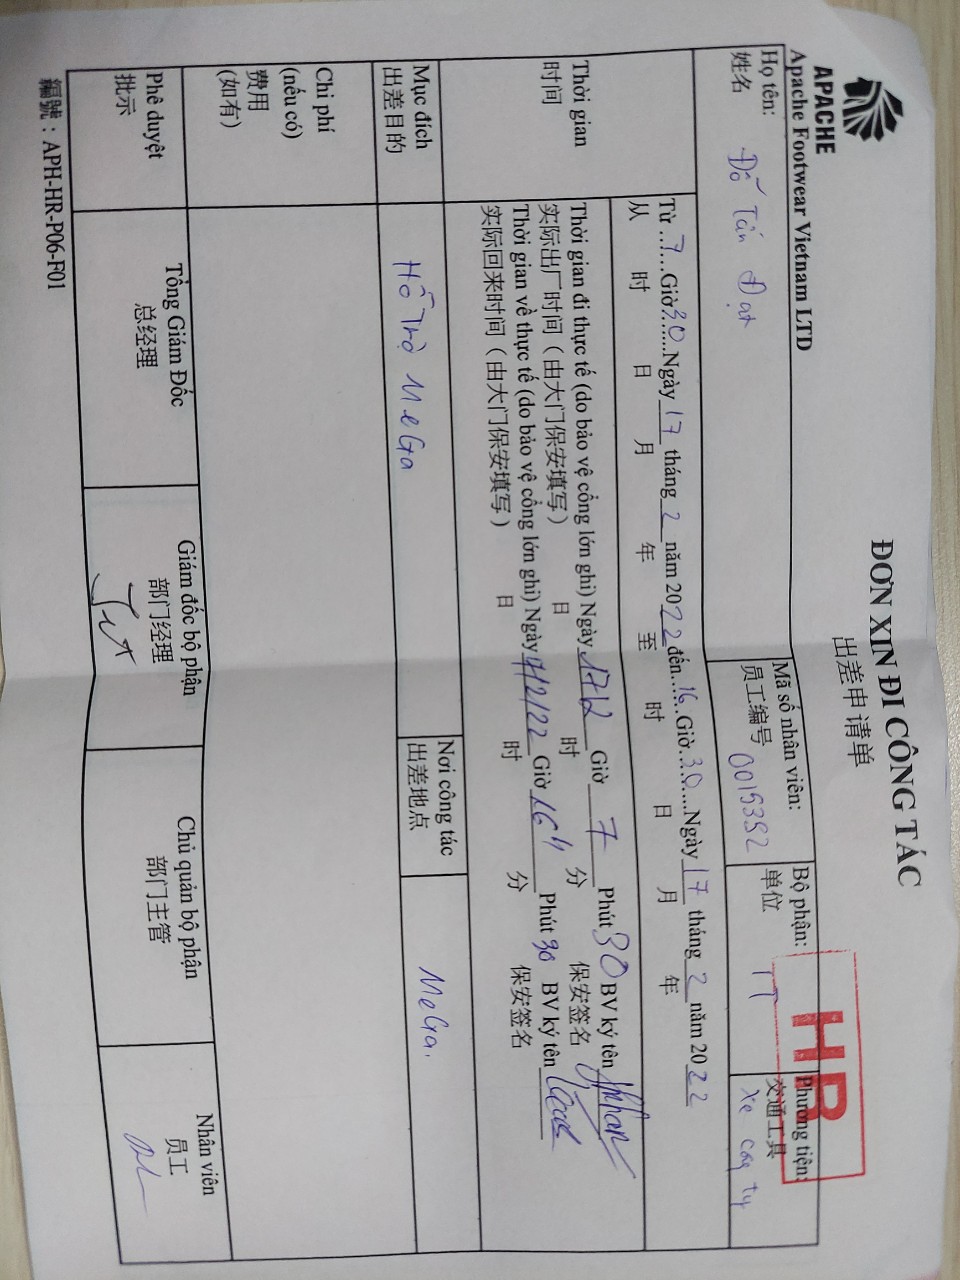 APACHE
Apache Footwear Vietnam LTD
ĐƠN XIN ĐI CÔNG TÁC
出差申请单
HR
Họ tên:
姓名
Đỗ Tấn Đạt
Mã số nhân viên:
员工编号
0015352
Bộ phận:
单位
IT
Phương tiện:
交通工具
xe công ty
Thời gian
时间
Từ...7...Giờ30......Ngày 17 tháng 2 năm 2022 đến...16..Giờ.30....Ngày 17 tháng 2 năm 2022
从 时 日 月 年 至 时 日 月 年
Thời gian đi thực tế (do bảo vệ cổng lớn ghi) Ngày 17/2 Giờ 7 Phút 30 BV ký tên
实际出厂时间（由大门保安填写） 日 时 分 保安签名
Thời gian về thực tế (do bảo vệ cổng lớn ghi) Ngày Giờ 16h Phút 30 BV ký tên
实际回来时间（由大门保安填写） 日 时 分 保安签名
Mục đích
出差目的
Hỗ Trợ MeGa
Nơi công tác
出差地点
MeGa.
Chi phí
(nếu có)
费用
(如有)
Phê duyệt
批示
Tổng Giám Đốc
总经理
Giám đốc bộ phận
部门经理
Chủ quản bộ phận
部门主管
Nhân viên
员工
編號：APH-HR-P06-F01